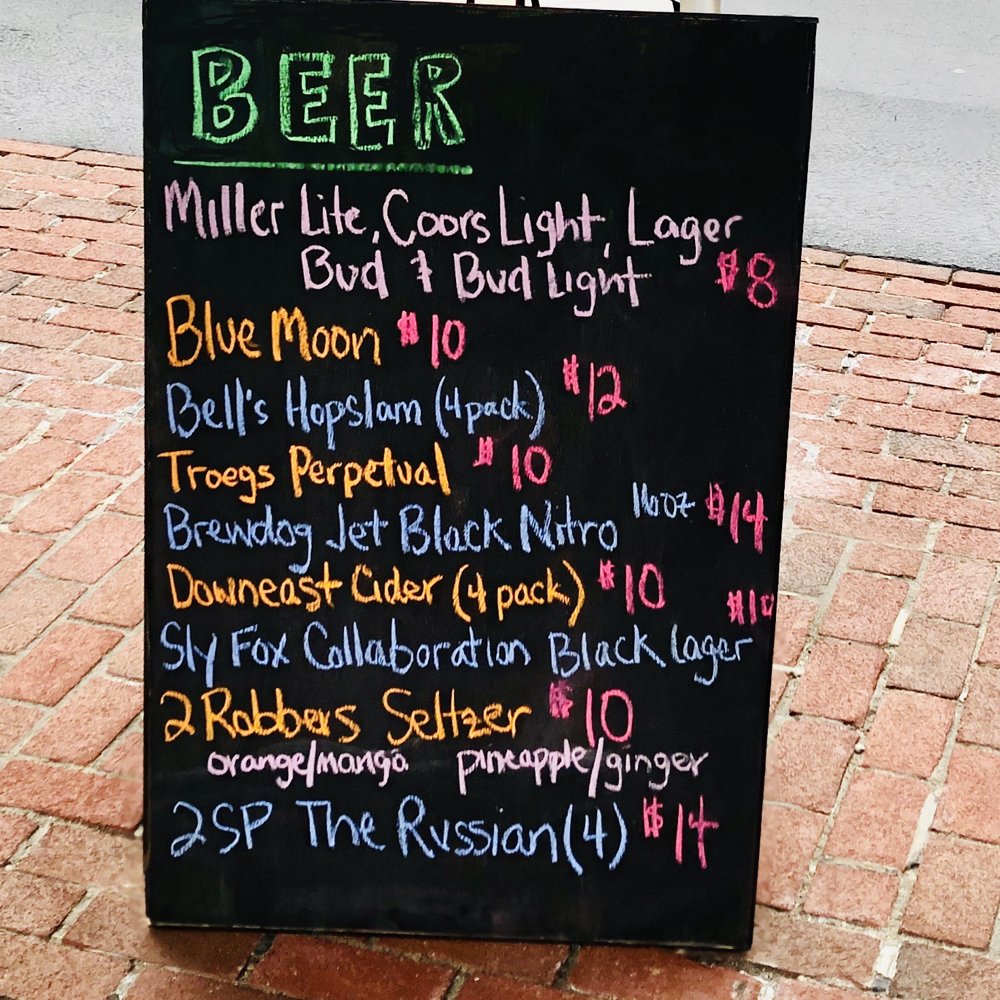 BEER
Miller Lite, Coors Light, Lager
Bud & Bud Light $8
Blue Moon $10
Bell's Hopslam (4pack) $12
Troegs Perpetual $10
Brewdog Jet Black Nitro 16oz $14
Downeast Cider (4 pack) $10
Sly Fox Collaboration Black Lager $10
2 Robbers Seltzer $10
orange/mango pineapple/ginger
2SP The Russian (4) $14